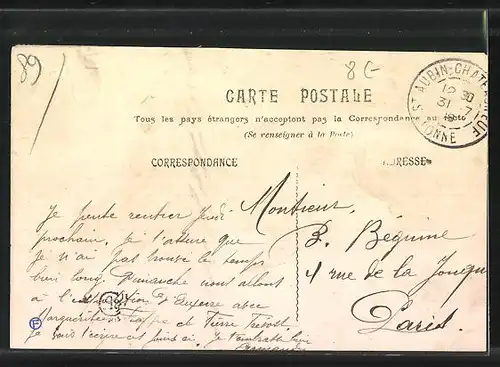 89
8 G
CARTE POSTALE
Tous les pays étrangers n'acceptent pas la Correspondance au recto
(Se renseigner à la Poste)
CORRESPONDANCE
ADRESSE
ST AUBIN-CHATEAUNEUF
12 30
31 7
YONNE
Je pense rentrer Jeudi
prochain. Je t'assure que
je n'ai pas trouvé le temps
bien long. Dimanche nous allons
à d'Auxerre avec
Marguerite et Pierre
Je vous Je t'embrasse
Monsieur
P. Béguine
4 rue de la
Paris.
F